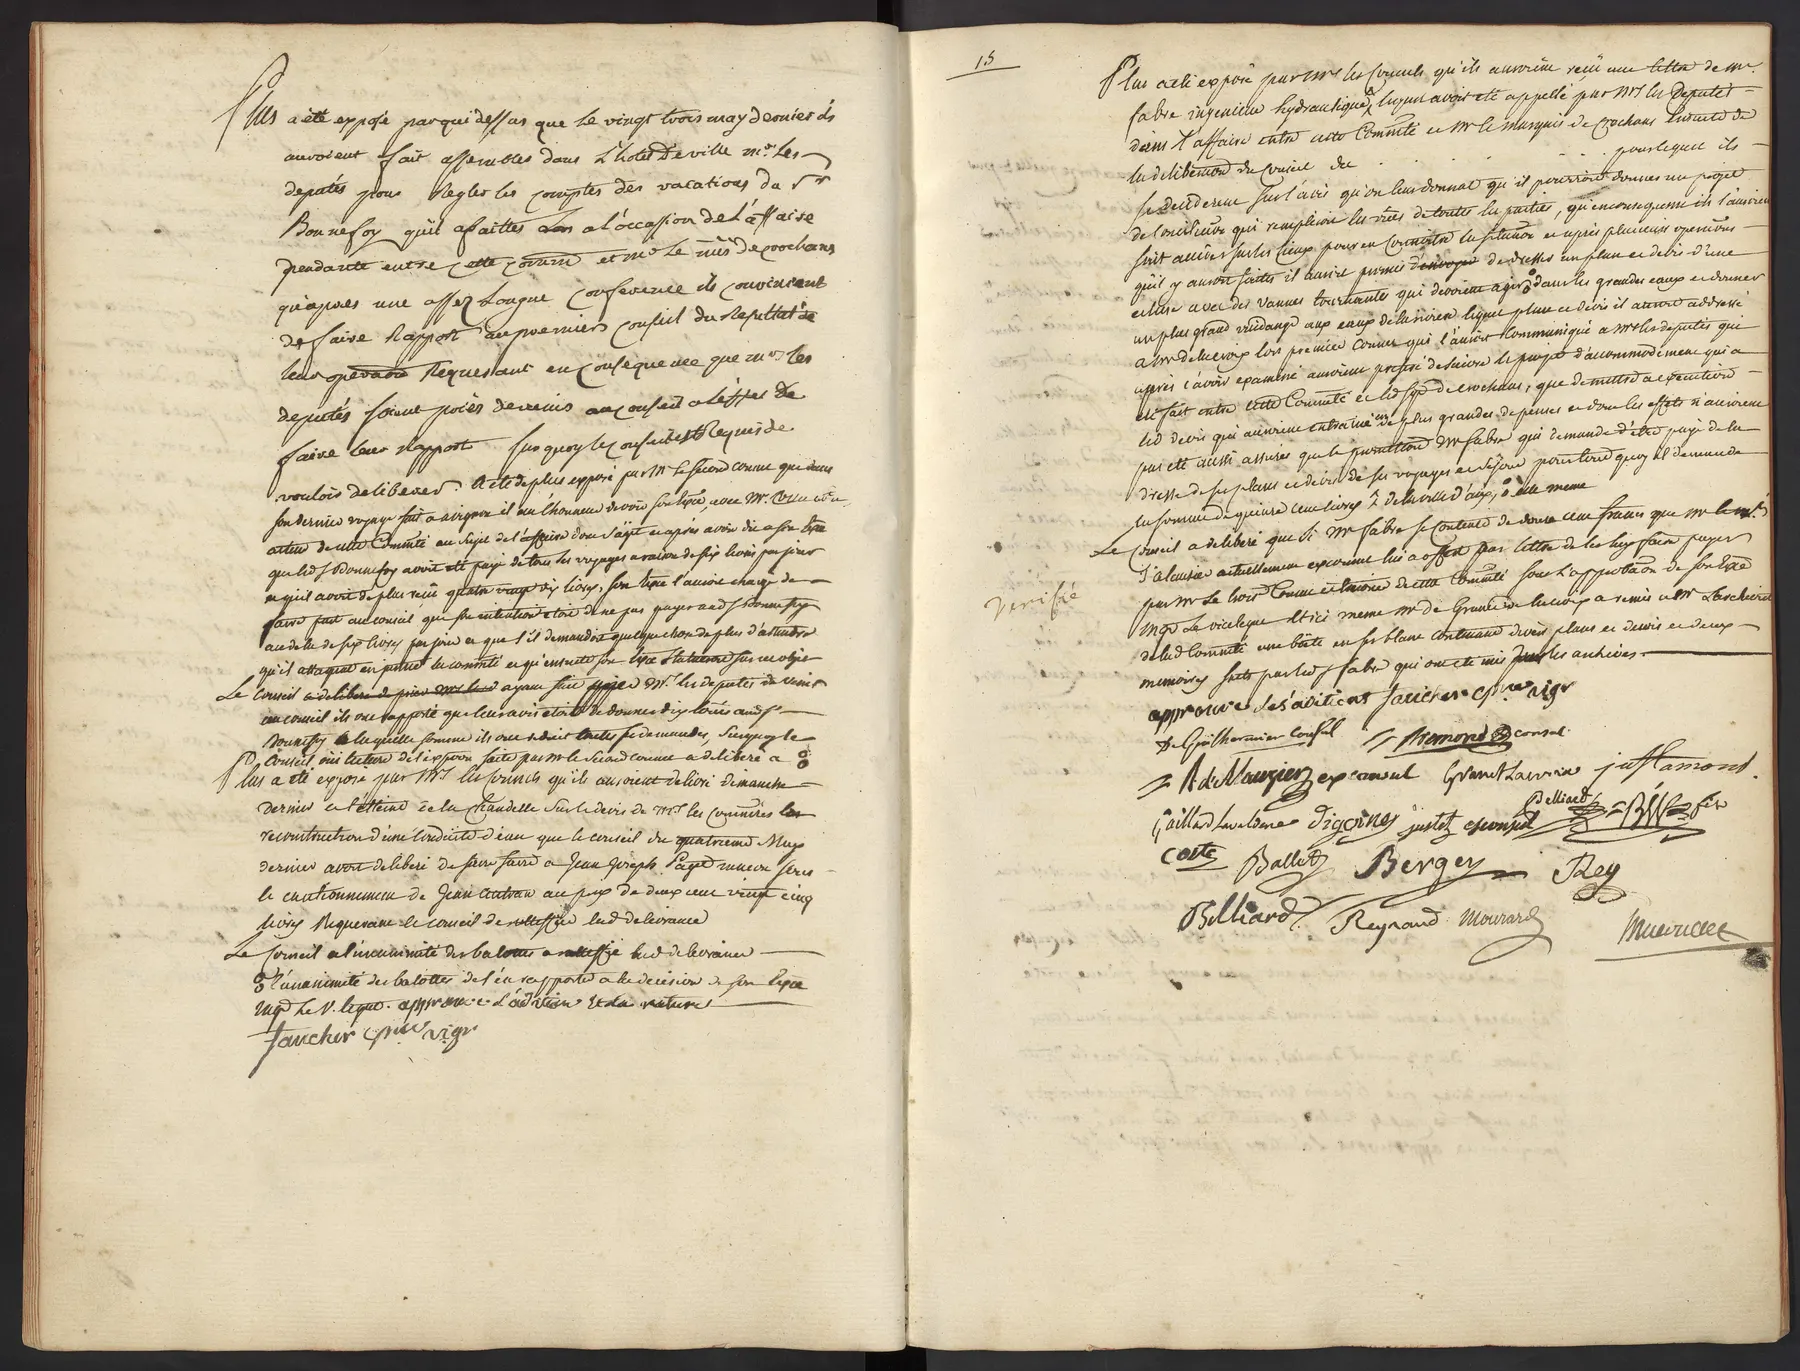 Plus a été exposé par qui dessus que le vingt trois may dernier ils
auroient fait assembler dans L'hotel De ville mrs Les
deputés pour Regler les comptes des vacations du Sr
Bonnefoy qu'il a faittes a l'occasion de L'affaire
pendante entre cette commté et mr le mis de crochans
qu'apres une assez Longue conference ils convinrent
de faire Rapport au premier conseil du Resultat de
leur operation Requerant en consequence que mrs les
deputés soient priés de venir au conseil a l'effet de
faire leur Rapport sur quoy le conseil est Requis de
vouloir deliberer. A eté de plus exposé par Mr le second consul que dans
son dernier voyage fait a avignon il eut l'honneur de voir son Exce avec Mr
de cette Commté au sujet de l'affaire dont s'agit et apres avoir dit a son Exce
que led Sr Bonnefoy avoit eté payé de tous ses voyages a raison de six livres par jour
et qu'il avoit de plus reçû quatre vingt dix livres, son Exce l'auroit chargé de
faire part au conseil que son intention etoit de ne pas payer aud Sr Bonnefoy
au dela de six livres par jour et que s'il demandoit quelque chose de plus d'attendre
qu'il attaquat en justice la commté et qu'ensuite son Exce statueroit sur cet objet
Le Conseil a deliberé de prier Mrs les d ayant fait prier Mrs les deputés de venir
au conseil ils ont rapporté que leur avis etoit de donner dix louis aud Sr
Bonnefoy a laquelle somme ils ont reduit toutes ses demandes, sur quoy le
Conseil oui lecture de l'exposé faite par Mr le second consul a deliberé a
Plus a été exposé par Mrs les Consuls qu'ils auroient delivré dimanche
dernier a l'etteint de la chandelle sur le devis de Mrs les Commres la
reconstruction d'une conduite d'eau que le conseil du quatrieme May
dernier avoit deliberé de faire faire a Jean Joseph Pagé macon sous
le cautionnement de Jean au prix de deux cent vingt cinq
livres Requerant le conseil de ratiffier lad delivrance
Le Conseil a l'unanimité des balottes a ratiffié lad delivrance
l'unanimité des balottes de s'en rapporter a la decision de son Exce
Mgr Le V. legat. approuve L'adition et la rature
faucher vigr
15
Plus a eté exposé par Mrs les Consuls qu'ils auroient reçû une lettre de Mr
fabre ingenieur hydraulique lequel avoit eté appellé par Mrs les Deputés
dans l'affaire entre cette Commté et Mr le marquis de Crochans ensuite de
la deliberation du conseil du . . . . . . pour lequel ils
se deciderent sur l'avis qu'on leur donnat qu'il pourroit donner un projet
de conciliation qui rempliroit les vües de toutes les parties, qu'en consequence ils l'auroient
fait arriver sur les lieux pour en connoitre la situation et apres plusieurs operations
qu'il y auroit faites il auroit promis d'envoyer de dresser un plan et devis d'une
ecluse avec des vannes tournantes qui devoient agir dans les grandes eaux et donner
un plus grand vuidange aux eaux de la riviere lequel plan et devis il auroit addressé
a Mr Delacroix lors premier Consul qui l'auroit communiqué a Mrs les deputés qui
après l'avoir examiné auroient preferé de suivre le projet d'accommodement qui a
eté fait entre cette Commté et led Sgr de crochans, que de mettre a execution
led devis qui auroient entrainé de plus grandes depenses et dont les effets n'auroient
pas eté aussi assurés que le promettoit Mr fabre qui demande d'être payé de la
dresse de ses plans et devis de ses voyages et sejour pour tout quoy il demande
la somme de quinze cent livres de la ville d'aix, a elle meme
Le Conseil a deliberé que si Mr fabre se contente de douze cent francs que Mr le mis
actuellement exconsul lui a offert par lettre de les luy faire payer
par Mr Le tresorier de cette Commté sous L'approbation de son Exce
Mgr Le vicelegat et ici meme Mr de Granet de lacroix a remis a Mr L'archiviste
de lad Commté une boete en fer blanc contenant divers plans et devis et deux
memoires faits par led Sr fabre qui ont eté mis dans les archives.
Verifié
approuve les aditions faucher vigr
De Guilhermier Consul Raimond consul
A de Mauziers ex consul Granet Lacroix justamond.
Gaillard Lavaldene Digoines justet exconsul Belliard
Coste Ballet Berger Rey
Billiard Reynaud Mourard